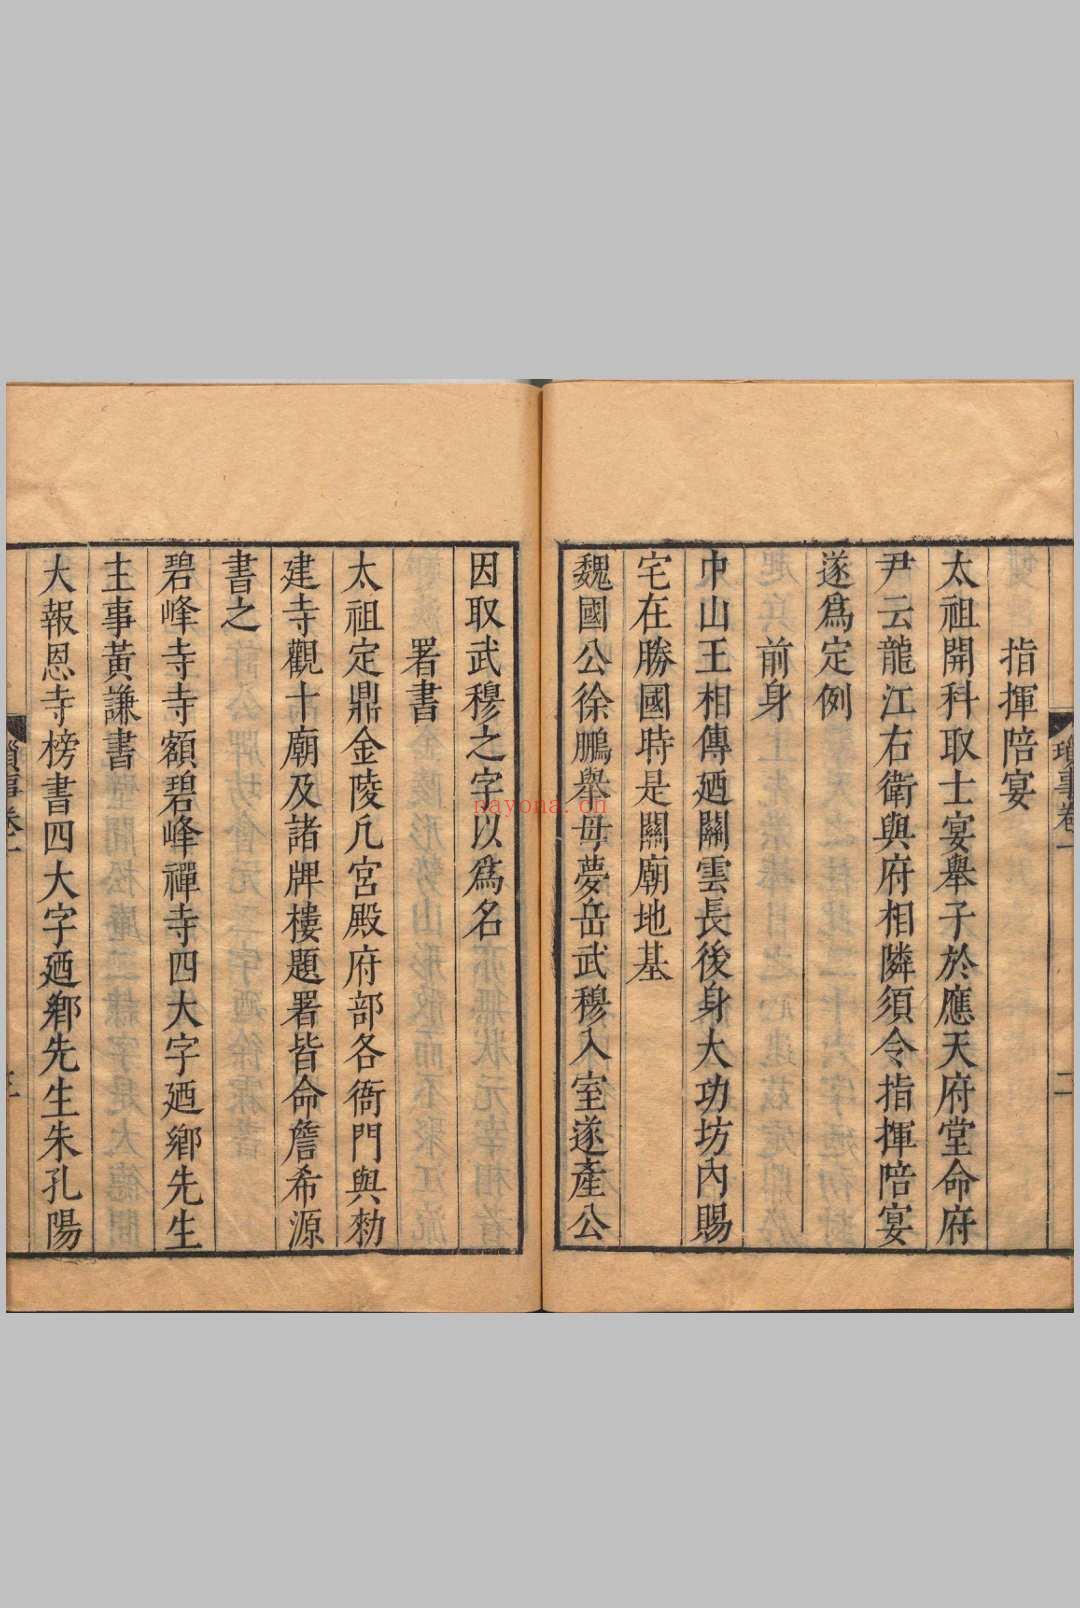 瑣事卷一
二
指揮陪宴
太祖開科取士宴舉子於應天府堂命府
尹云龍江右衛與府相隣須令指揮陪宴
遂爲定例
前身
中山王相傳廼關雲長後身大功坊內賜
宅在勝國時是關廟地基
魏國公徐鵬舉母夢岳武穆入室遂產公
因取武穆之字以爲名
署書
太祖定鼎金陵凡宮殿府部各衙門與勑
建寺觀十廟及諸牌樓題署皆命詹希源
書之
碧峰寺寺額碧峰禪寺四大字廼鄉先生
主事黃謙書
大報恩寺榜書四大字廼鄉先生朱孔陽
瑣事卷一
nayona.cn